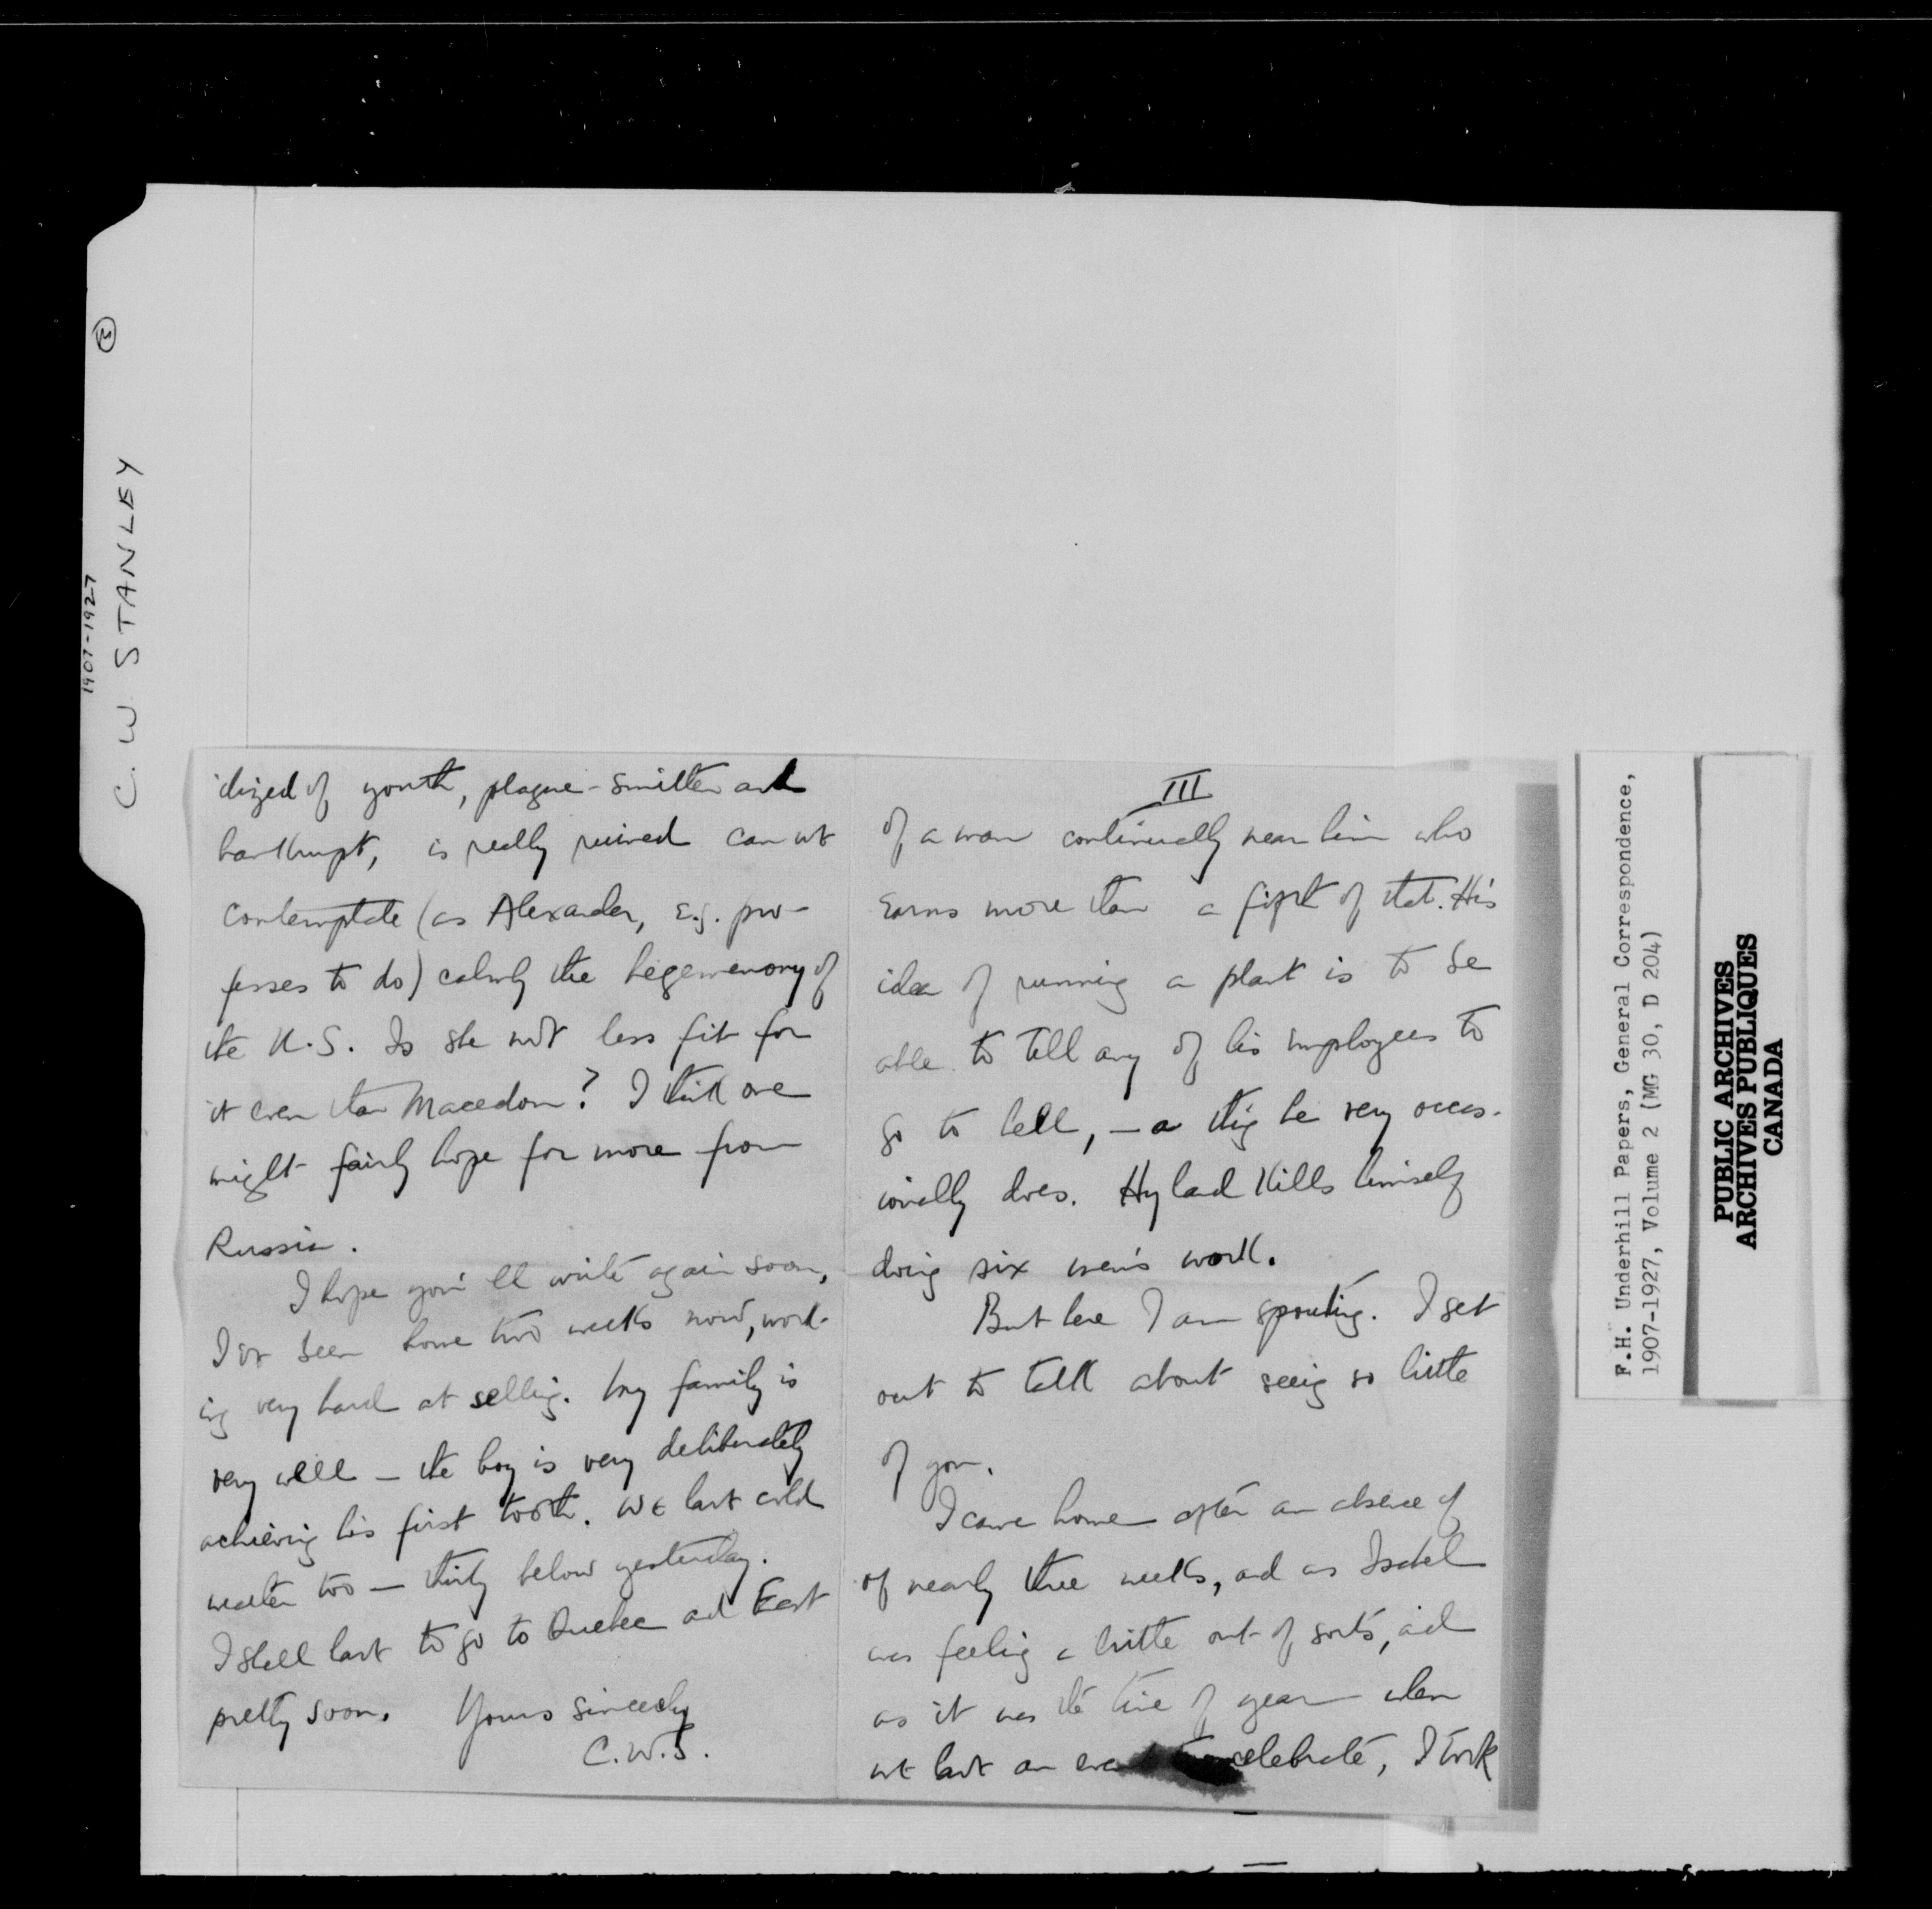 1907-1927
C. W. STANLEY
of youth, plague-smitten and
bankrupt, is really ruined can we
contemplate (as Alexander, e.g. pro-
fesses to do) calmly the hegemenony of
the U.S. Is she not less fit for
it even than Macedon? I think one
might fairly hope for more from
Russia.
I hope you'll write again soon,
I've been home two weeks now, work-
ing very hard at selling. My family is
very well – the boy is very deliberately
achieving his first tooth. We have cold
weather too – thirty below yesterday.
I shall have to go to Quebec and East
pretty soon. Yours sincerely
C.W.S.
III
of a man continually near him who
earns more than a fifth of that. His
idea of running a plant is to be
able to tell any of his employees to
go to hell, – a thing he very occas-
ionally does. Hyland kills himself
doing six men's work.
But here I am spouting. I set
out to talk about seeing so little
of you.
I came home after an absence of
of nearly three weeks, and as Isabel
was feeling a little out of sorts, and
as it was the time of year when
we have an celebrate, I took
F.H. Underhill Papers, General Correspondence,
1907-1927, Volume 2 (MG 30, D 204)
PUBLIC ARCHIVES
ARCHIVES PUBLIQUES
CANADA